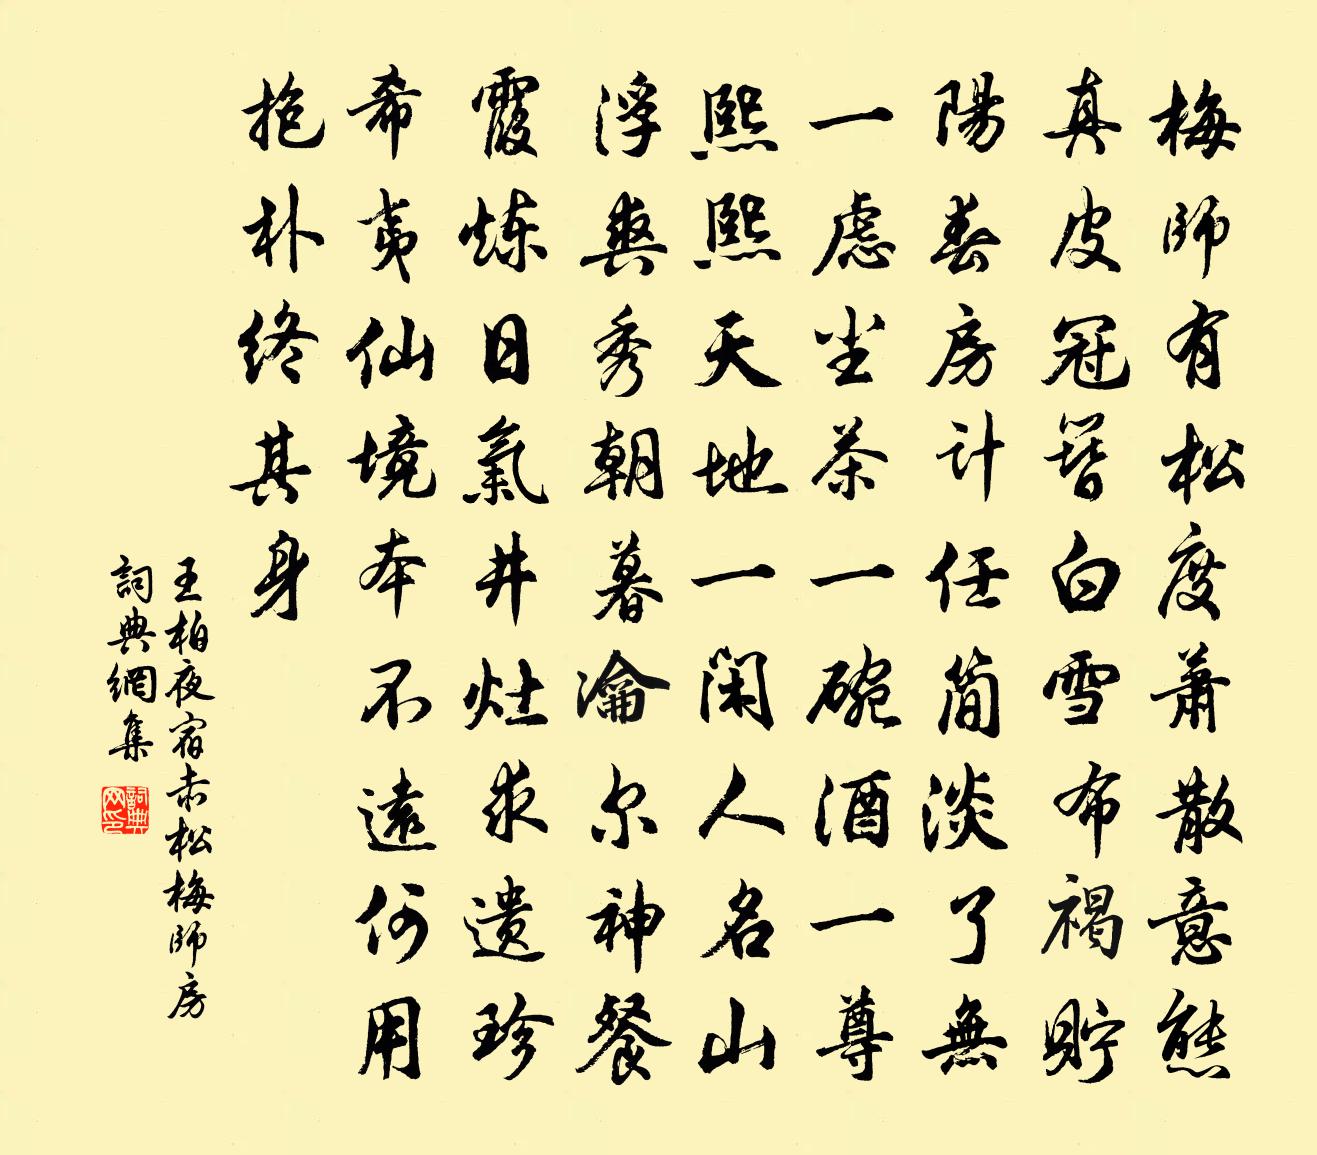 梅師有松度蕭散意態
真皮冠簪白雪布褐貯
陽春房计任簡淡了無
一虑尘茶一碗酒一尊
熙熙天地一闲人名山
浮爽秀朝暮瀹尔神餐
霞炼日氣井灶求遗珍
希夷仙境本不遠何用
抱朴终其身
王柏夜宿赤松梅師房
詞典網集
詞典网印